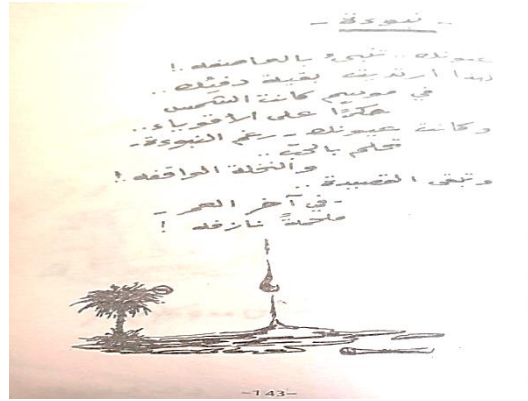 - نبوءة -
عيونك .. تنبىء بالعاصفه .!
لهذا ارتديت بقية دفئك ..
في موسم كانت الشمس
حكرًا على الأقوياء ..
وكانت عيونك - رغم النبوءة -
تحلم بالحب ..
والنخلة الواقفه !
وتبقى القصيدة ..
- في آخر العمر -
ملحمةً نازفه !
-143-